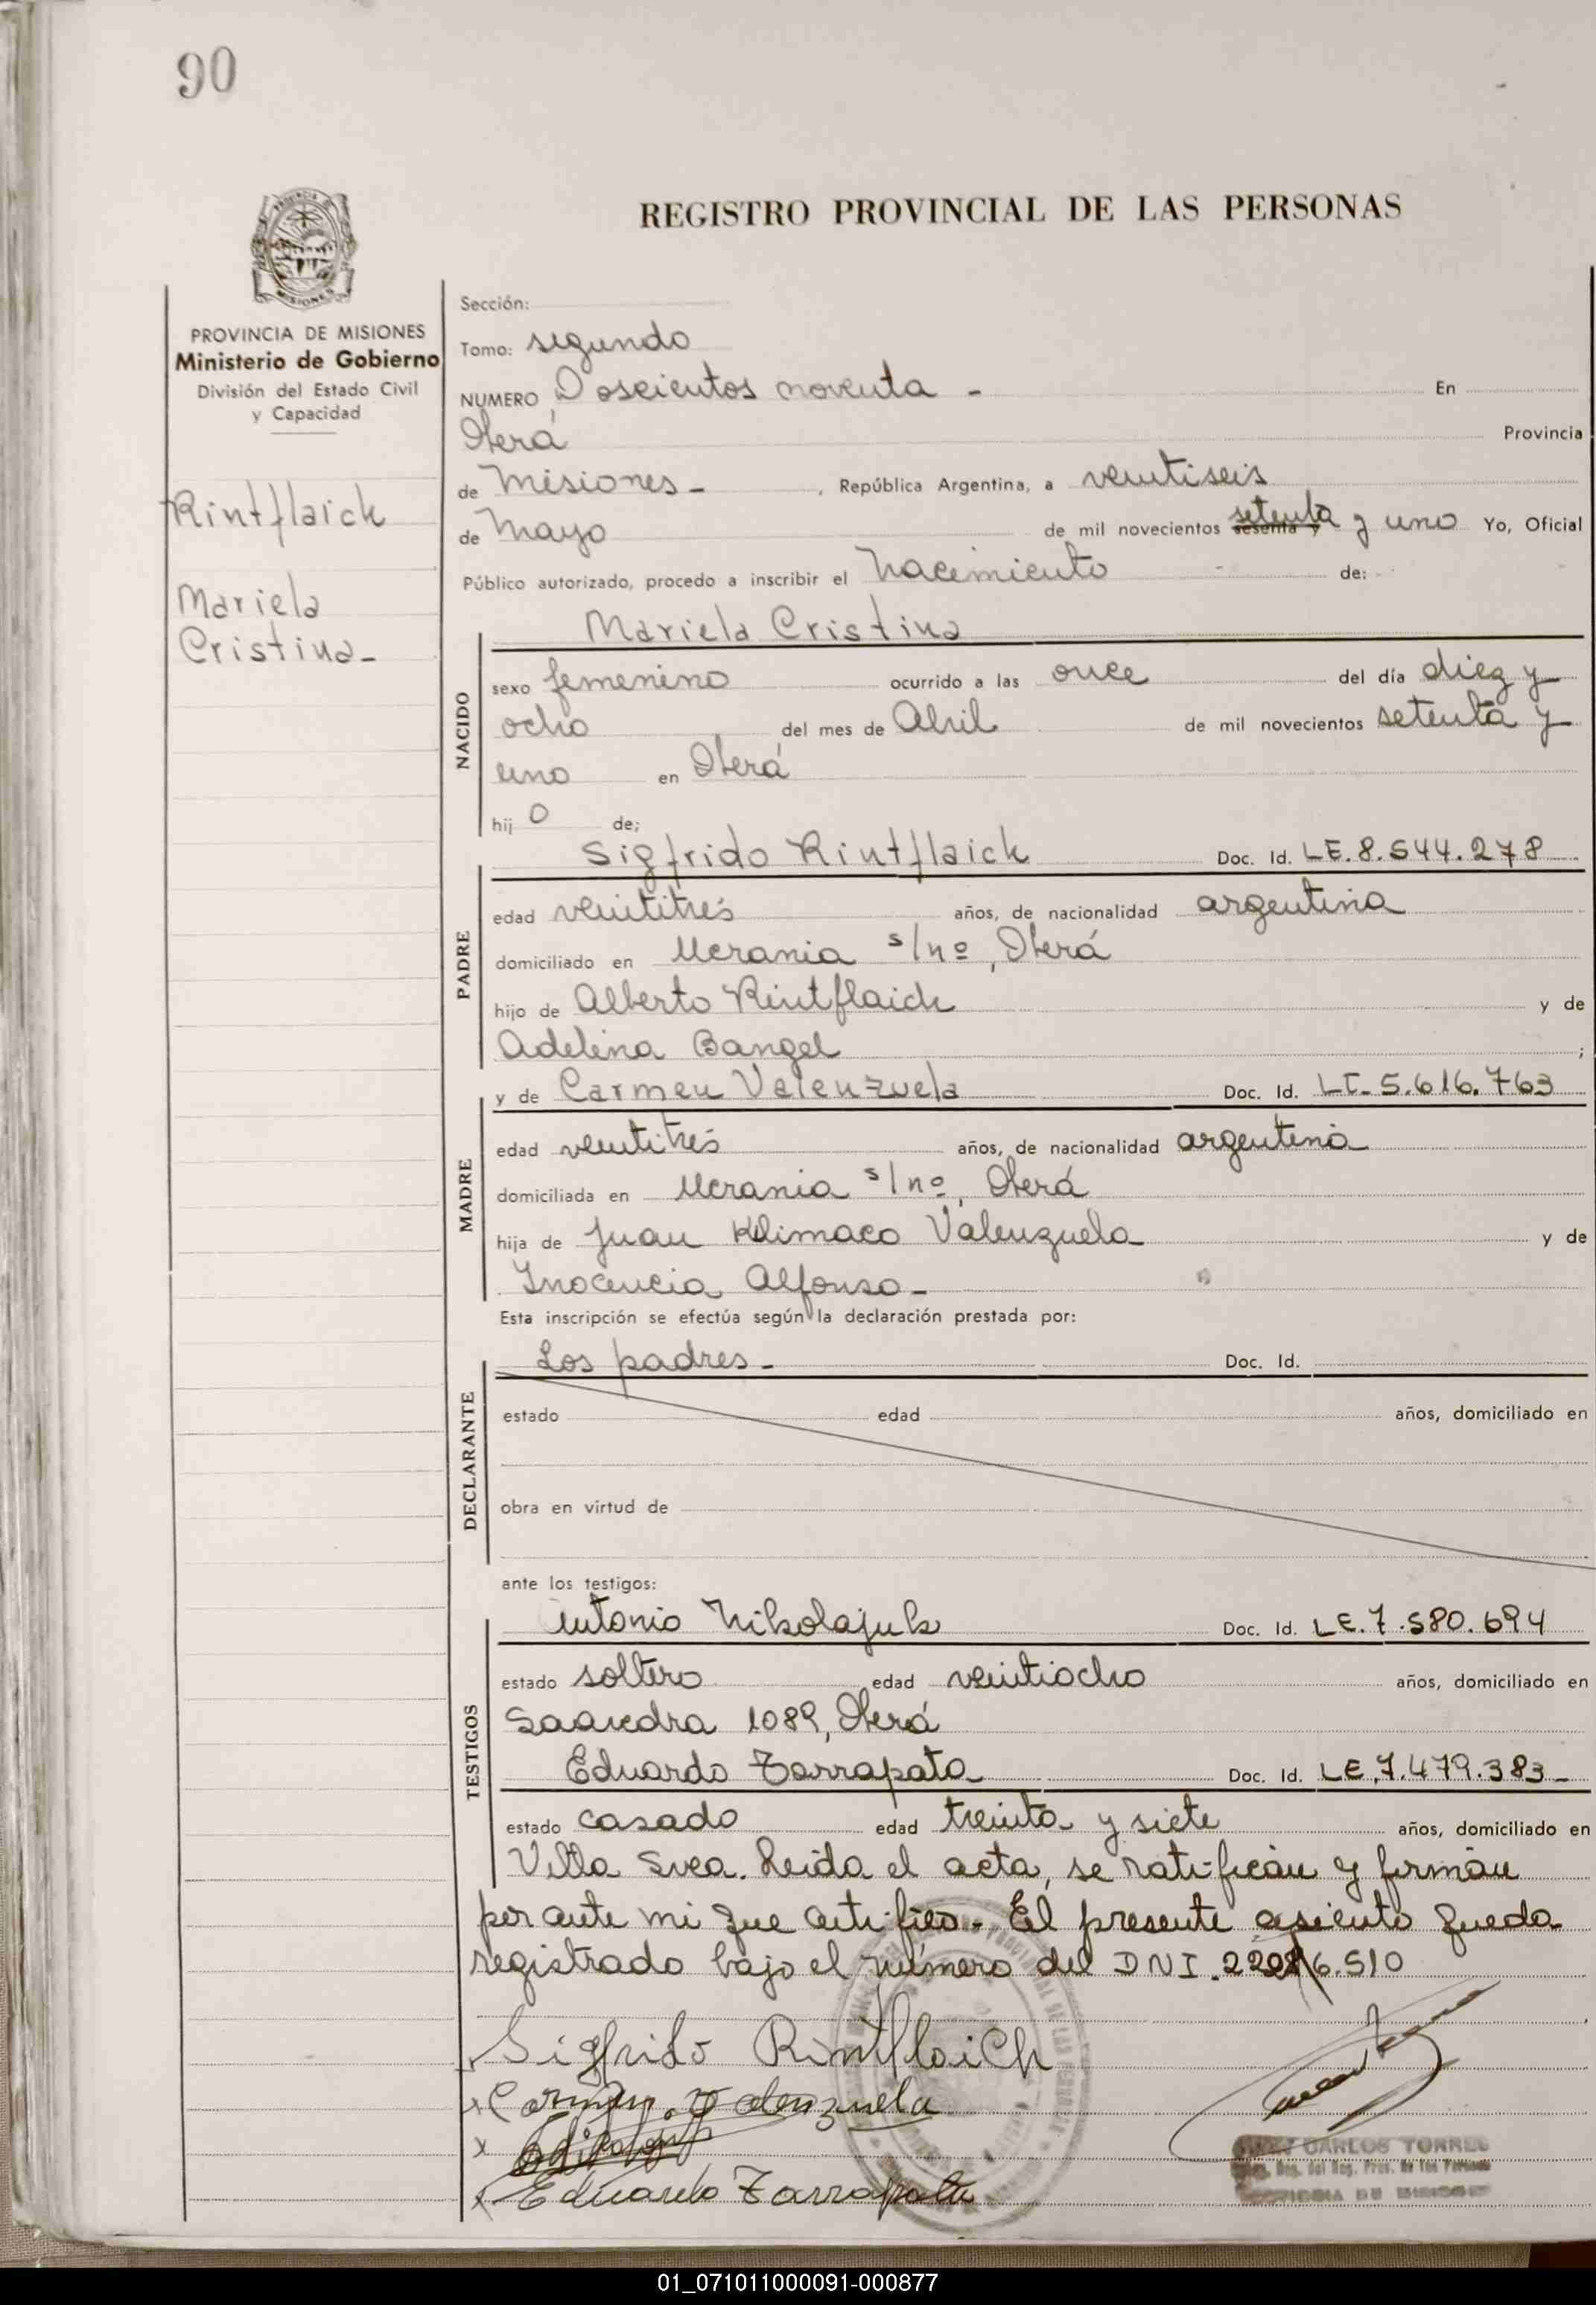 90
REGISTRO PROVINCIAL DE LAS PERSONAS
PROVINCIA DE MISIONES
Ministerio de Gobierno
División del Estado Civil
y Capacidad
Rintflaich
Mariela
Cristina-
Sección:
Tomo: segundo
NUMERO Doscientos noventa - En
Oberá Provincia
de Misiones - , República Argentina, a veintiseis
de Mayo de mil novecientos sesenta y setenta y uno Yo, Oficial
Público autorizado, procedo a inscribir el nacimiento de:
NACIDO
Mariela Cristina
sexo femenino ocurrido a las once del día diez y
ocho del mes de Abril de mil novecientos setenta y
uno en Oberá
hij o de;
PADRE
Sigfrido Rintflaich Doc. Id. LE. 8.544.278
edad veintitrés años, de nacionalidad argentina
domiciliado en Ucrania s/nº, Oberá
hijo de Alberto Rintflaich y de
Adelina Bangel ;
MADRE
y de Carmen Valenzuela Doc. Id. LC- 5.616.763
edad veintitrés años, de nacionalidad argentina
domiciliada en Ucrania s/nº, Oberá
hija de Juan Klimaco Valenzuela y de
Inocencia Alfonso-
Esta inscripción se efectúa según la declaración prestada por:
DECLARANTE
Los padres- Doc. Id.
estado edad años, domiciliado en
obra en virtud de
ante los testigos:
TESTIGOS
Antonio Nikolajuk Doc. Id. LE. 7.580.694
estado soltero edad veintiocho años, domiciliado en
Saavedra 1089, Oberá
Eduardo Zarrapata Doc. Id. LE. 7.479.383-
estado casado edad treinta y siete años, domiciliado en
Villa Svea. Leida el acta, se ratifican y firman
por ante mi que certifico- El presente asiento queda
registrado bajo el número del DNI 6.510
Sigfrido Rintflaich
x Carmen Valenzuela
x
x Eduardo Zarrapata
CARLOS TORRES
01_071011000091-000877